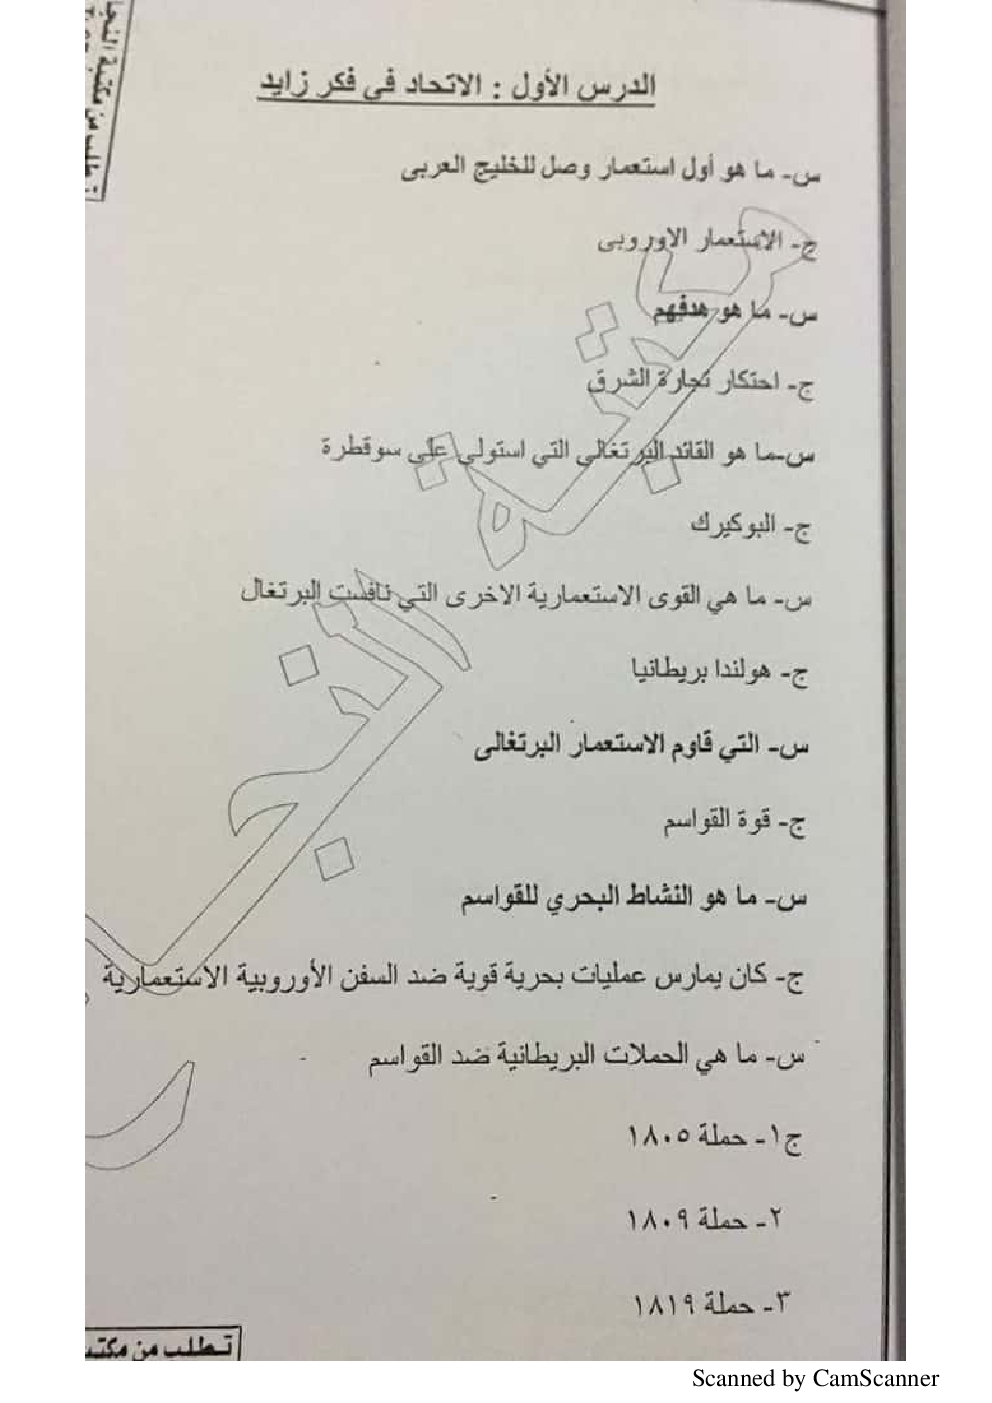 تطلب من مكتبة النجا
الدرس الأول : الاتحاد في فكر زايد
س- ما هو أول استعمار وصل للخليج العربى
ج- الاستعمار الاوروبى
س- ما هو هدفهم
ج- احتكار تجارة الشرق
س-ما هو القائد البرتغالى التي استولى على سوقطرة
ج- البوكيرك
س- ما هي القوى الاستعمارية الاخرى التي نافست البرتغال
ج- هولندا بريطانيا
س- التي قاوم الاستعمار البرتغالى
ج- قوة القواسم
س- ما هو النشاط البحري للقواسم
ج- كان يمارس عمليات بحرية قوية ضد السفن الأوروبية الاستعمارية
س- ما هي الحملات البريطانية ضد القواسم
ج١- حملة ١٨٠٥
٢- حملة ١٨٠٩
٣- حملة ١٨١٩
تطلب من مكتب
Scanned by CamScanner